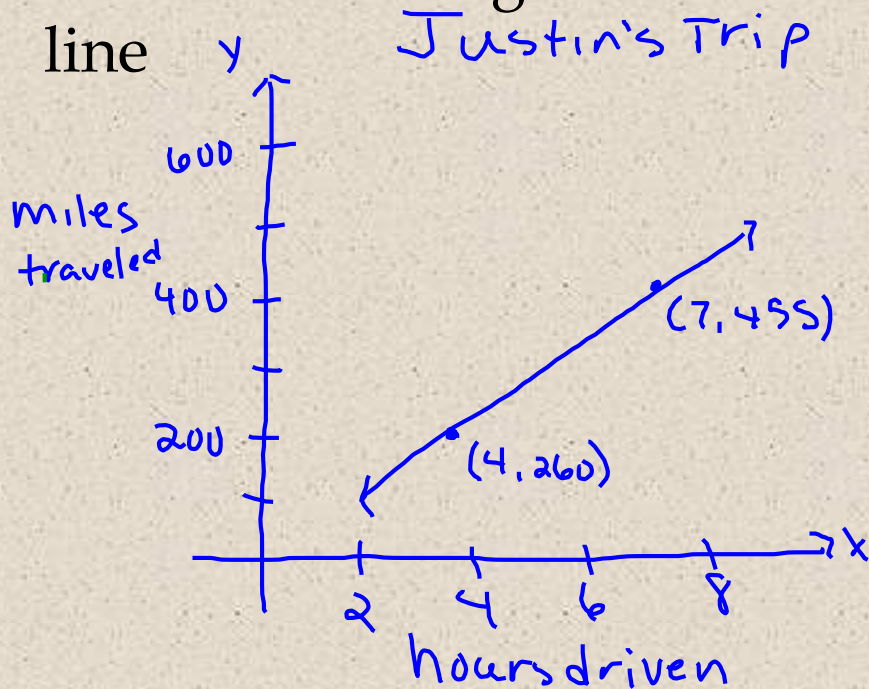 line
Justin's Trip
y
600
miles
traveled
400
(7, 455)
200
(4, 260)
x
2 4 6 8
hours driven